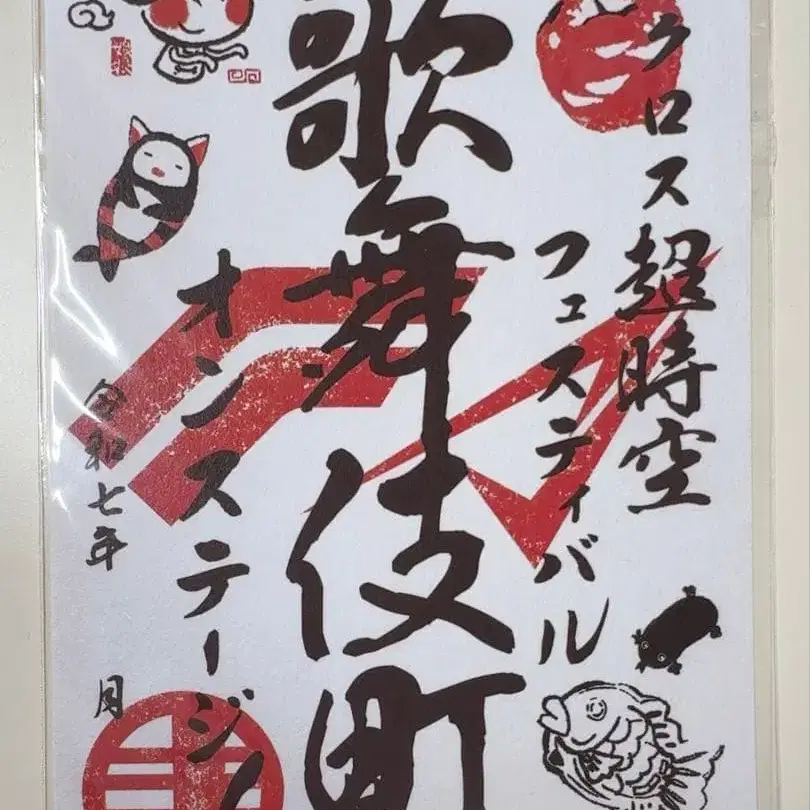 クロス超時空
フェスティバル
歌舞伎町
オンステージ!
令和七年 月